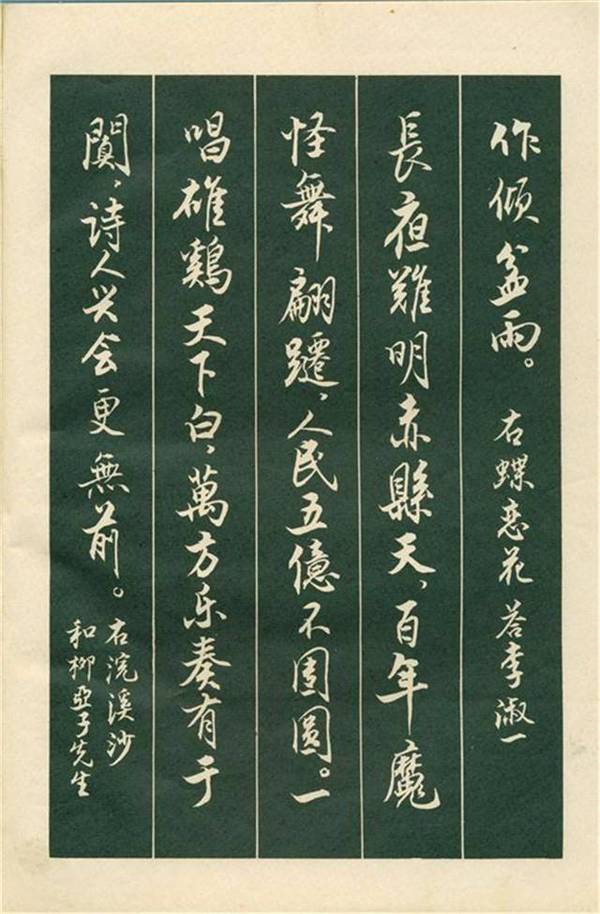 作倾盆雨。 右蝶恋花 答李淑一
長夜難明赤縣天，百年魔
怪舞翩躚，人民五億不团圆。一
唱雄鷄天下白，萬方乐奏有于
闐，诗人兴会更無前。
右浣溪沙
和柳亞子先生